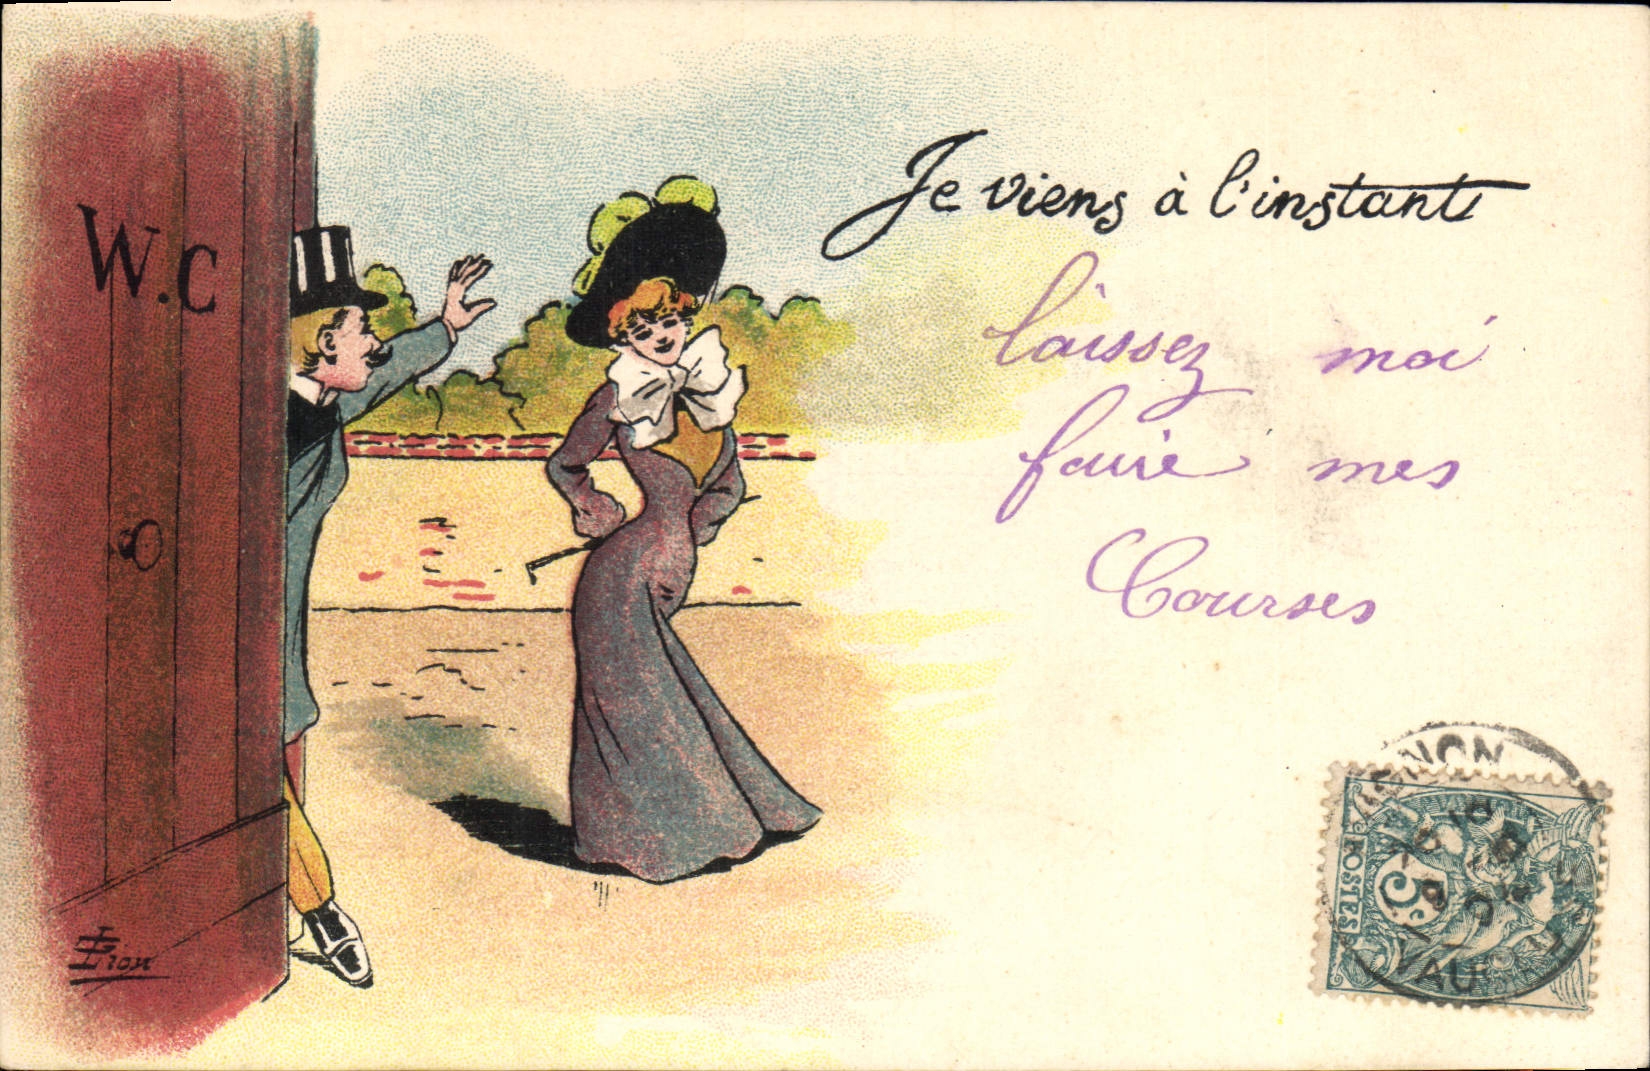 Je viens à l'instant
laissez moi
faire mes
Courses
W.C
Lion
POSTES
5